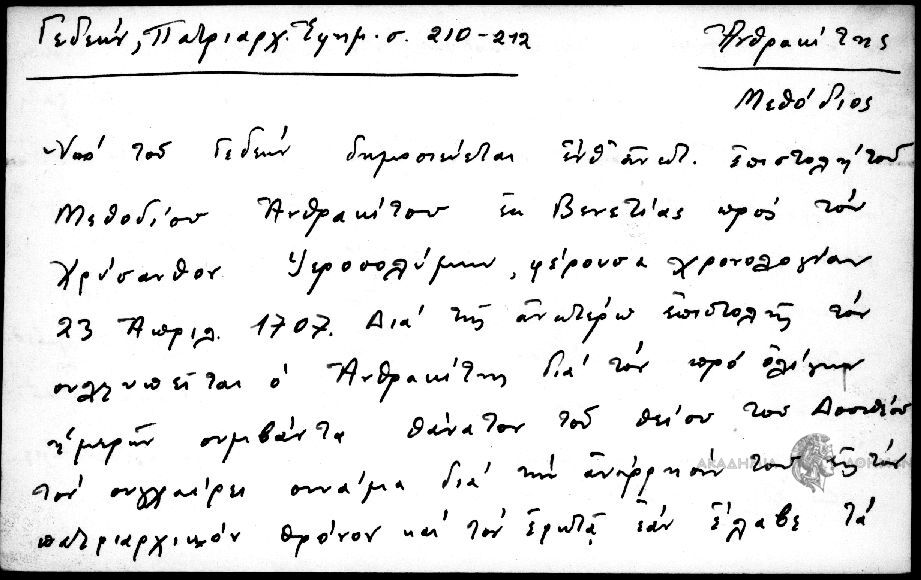 Γεδεών, Πατριαρχ. Ἐφημ. σ. 210-212
Ἀνθρακίτης
Μεθόδιος
Ὑπό τοῦ Γεδεών δημοσιεύεται ἐνθ' ἀνωτ. ἐπιστολή τοῦ
Μεθοδίου Ἀνθρακίτου ἐκ Βενετίας πρός τόν
Χρύσανθον Ἱεροσολύμων, φέρουσα χρονολογίαν
23 Ἀπριλ. 1707. Διά τῆς ἀνωτέρω ἐπιστολῆς τόν
συλλυπεῖται ὁ Ἀνθρακίτης διά τόν πρό ὀλίγων
ἡμερῶν συμβάντα θάνατον τοῦ θείου του Δοσιθέου
τόν συγχαίρει συνάμα διά τήν ἀνάρρησίν του εἰς τόν
πατριαρχικόν θρόνον καί τόν ἐρωτᾷ ἐάν ἔλαβε τά
ΑΚΑΔΗΜΙΑ ΑΘΗΝΩΝ